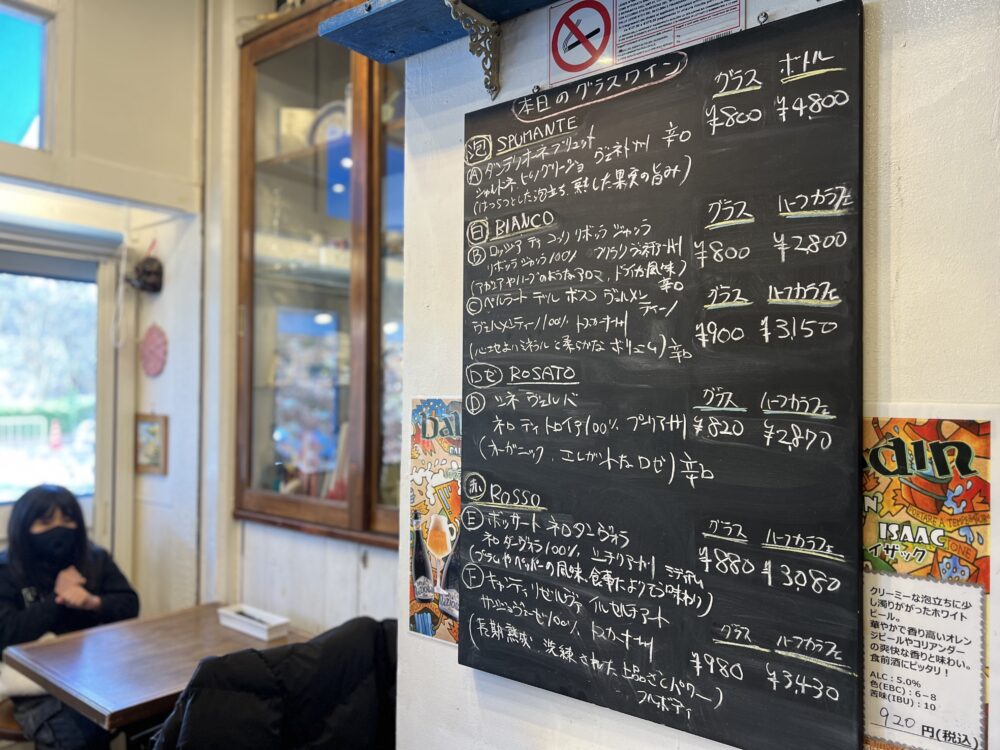 本日のグラスワイン
グラス ボトル
泡 SPUMANTE ¥800 ¥4,800
Ⓐ ダンテリオーネブリュット
シャルドネ ピノグリージョ ヴェネト州 辛口
(はつらつとした泡立ち、熟した果実の旨み)
白 BIANCO グラス ハーフカラフェ
Ⓑ ロッジア ディ コッリ リボッラ ジャッラ ¥800 ¥2,800
リボッラ ジャッラ100%
(アカシアやハーブのようなアロマ、ドライな風味) 辛口
グラス ハーフカラフェ
Ⓒ ベルラート デル ボスコ ヴェルメンティーノ
ヴェルメンティーノ100% トスカーナ州 ¥900 ¥3,150
(心地よいミネラルと柔らかなボリューム) 辛口
ロゼ ROSATO
グラス ハーフカラフェ
Ⓓ ソネ ヴェルバ
ネロ ディ トロイア100% プーリア州 ¥820 ¥2,870
(オーガニック、エレガントなロゼ) 辛口
赤 ROSSO
グラス ハーフカラフェ
Ⓔ ボッサート ネロ ダーヴォラ
ネロ ダーヴォラ100% シチリア州 ミディアム ¥880 ¥3,080
(プラムやペッパーの風味、食事によりそう味わい)
グラス ハーフカラフェ
Ⓕ キャンティ リゼルヴァ
サンジョヴェーゼ100% トスカーナ州 ¥980 ¥3,430
(長期熟成、洗練された上品さとパワー)
フルボディ
ISAAC
イザック
クリーミーな泡立ちに少
し濁りががったホワイト
ビール。
華やかで香り高いオレン
ジピールやコリアンダー
の爽快な香りと味わい。
食前酒にピッタリ!
ALC:5.0%
色(EBC):6-8
苦味(IBU):10
920 円(税込)